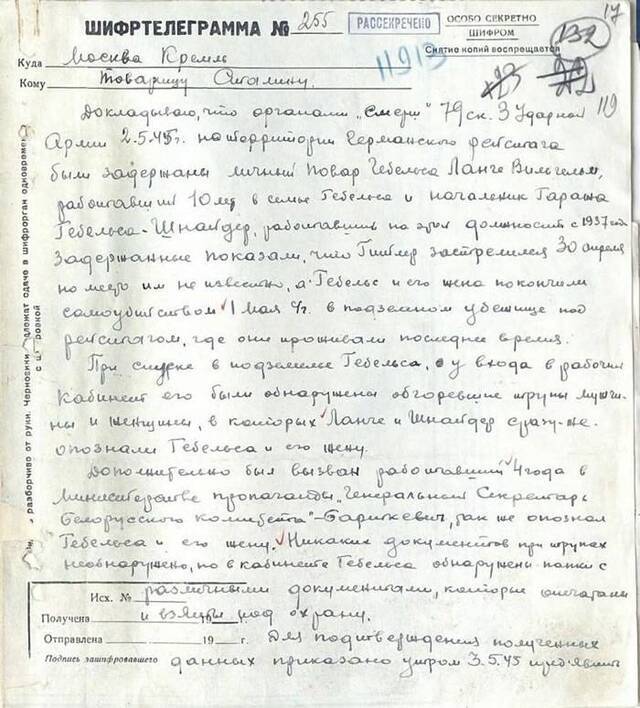 17
ШИФРТЕЛЕГРАММА № 255
РАССЕКРЕЧЕНО
ОСОБО СЕКРЕТНО
ШИФРОМ
Снятие копий воспрещается
132
Куда Москва Кремль
11913
Кому Товарищу Сталину.
119
Докладываю, что органами „Смерш" 79 ск. 3 Ударной
Армии 2.5.45г. на территории Германского рейстага
были задержаны личный повар Гебельса Ланге Вильгельм,
работавший 10 лет в семье Гебельса и начальник Гаража
Гебельса - Шнайдер, работавший на этой должности с 1937 года
Задержанные показали, что Гитлер застрелился 30 апреля
но место им не известно, а Гебельс и его жена покончили
самоубийством 1 мая с/г. в подземном убежище под
рейстагом, где они проживали последнее время.
При спуске в подземелье Гебельса, у входа в рабочий
кабинет его были обнаружены обгоревшие трупы мужчи-
ны и женщины, в которых Ланге и Шнайдер сразу-же
опознали Гебельса и его жену.
Дополнительно был вызван работавший 4 года в
Министерстве пропаганды „Генеральный Секретарь
Белорусского комитета"- так же опознал
Гебельса и его жену. Никаких документов при трупах
необнаружено, но в кабинете Гебельса обнаружены папки с
различными документами, которые опечатаны
и взяты под охрану.
Для подтверждения полученных
данных приказано утром 3.5.45
Исх. №
Получена
Отправлена 19 г.
Подпись зашифровавшего
разборчиво от руки. Черновики
сдаче в шифрорган